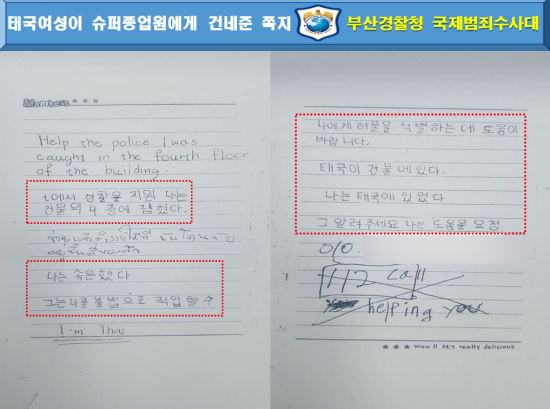 태국여성이 슈퍼종업원에게 건네준 쪽지
부산경찰청 국제범죄수사대
Members
Help the police I was
caught in the fourth floor
of the building.
에서 경찰을 지원 나는
건물의 4 층에 잡혔다.
나는 속은했다
그는 나를 불법으로 직업할 수
I'm Thai
나에게 허물을 식별하는 데 도움이
바랍니다.
태국이 건물에 있다.
나는 태국에 있었다
그 알려주세요 나는 도움을 요청
010
112 call
helping you
wow!! It's really delicious